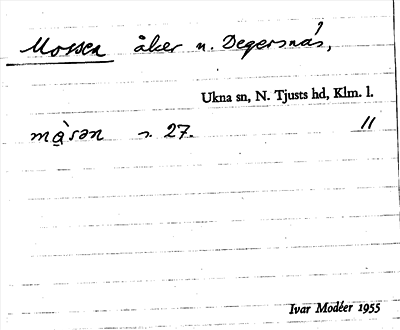 Mossen åker n. Degersnäs,
Ukna sn, N. Tjusts hd, Klm. l.
27. 11
Ivar Modéer 1955